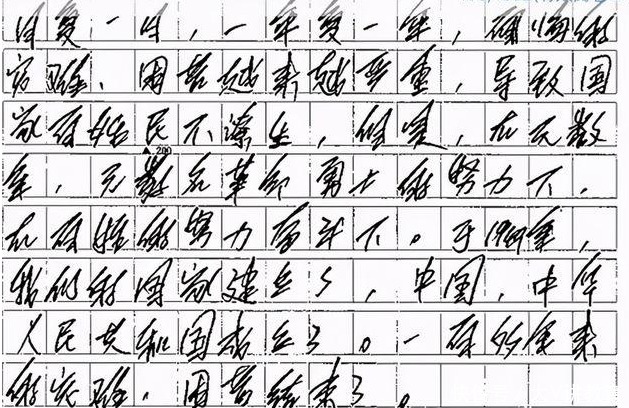 日复一日，一年复一年，存侮的
灾难、困苦越来越严重，导致国
家存姓民不潦生，但是，在无数
200
年，无数名革命勇士的努力下，
在百姓的努力奋斗下。于1949年，
我们的国家建立了，中国，中华
人民共和国成立了。一百多年来
的灾难，困苦结束了。